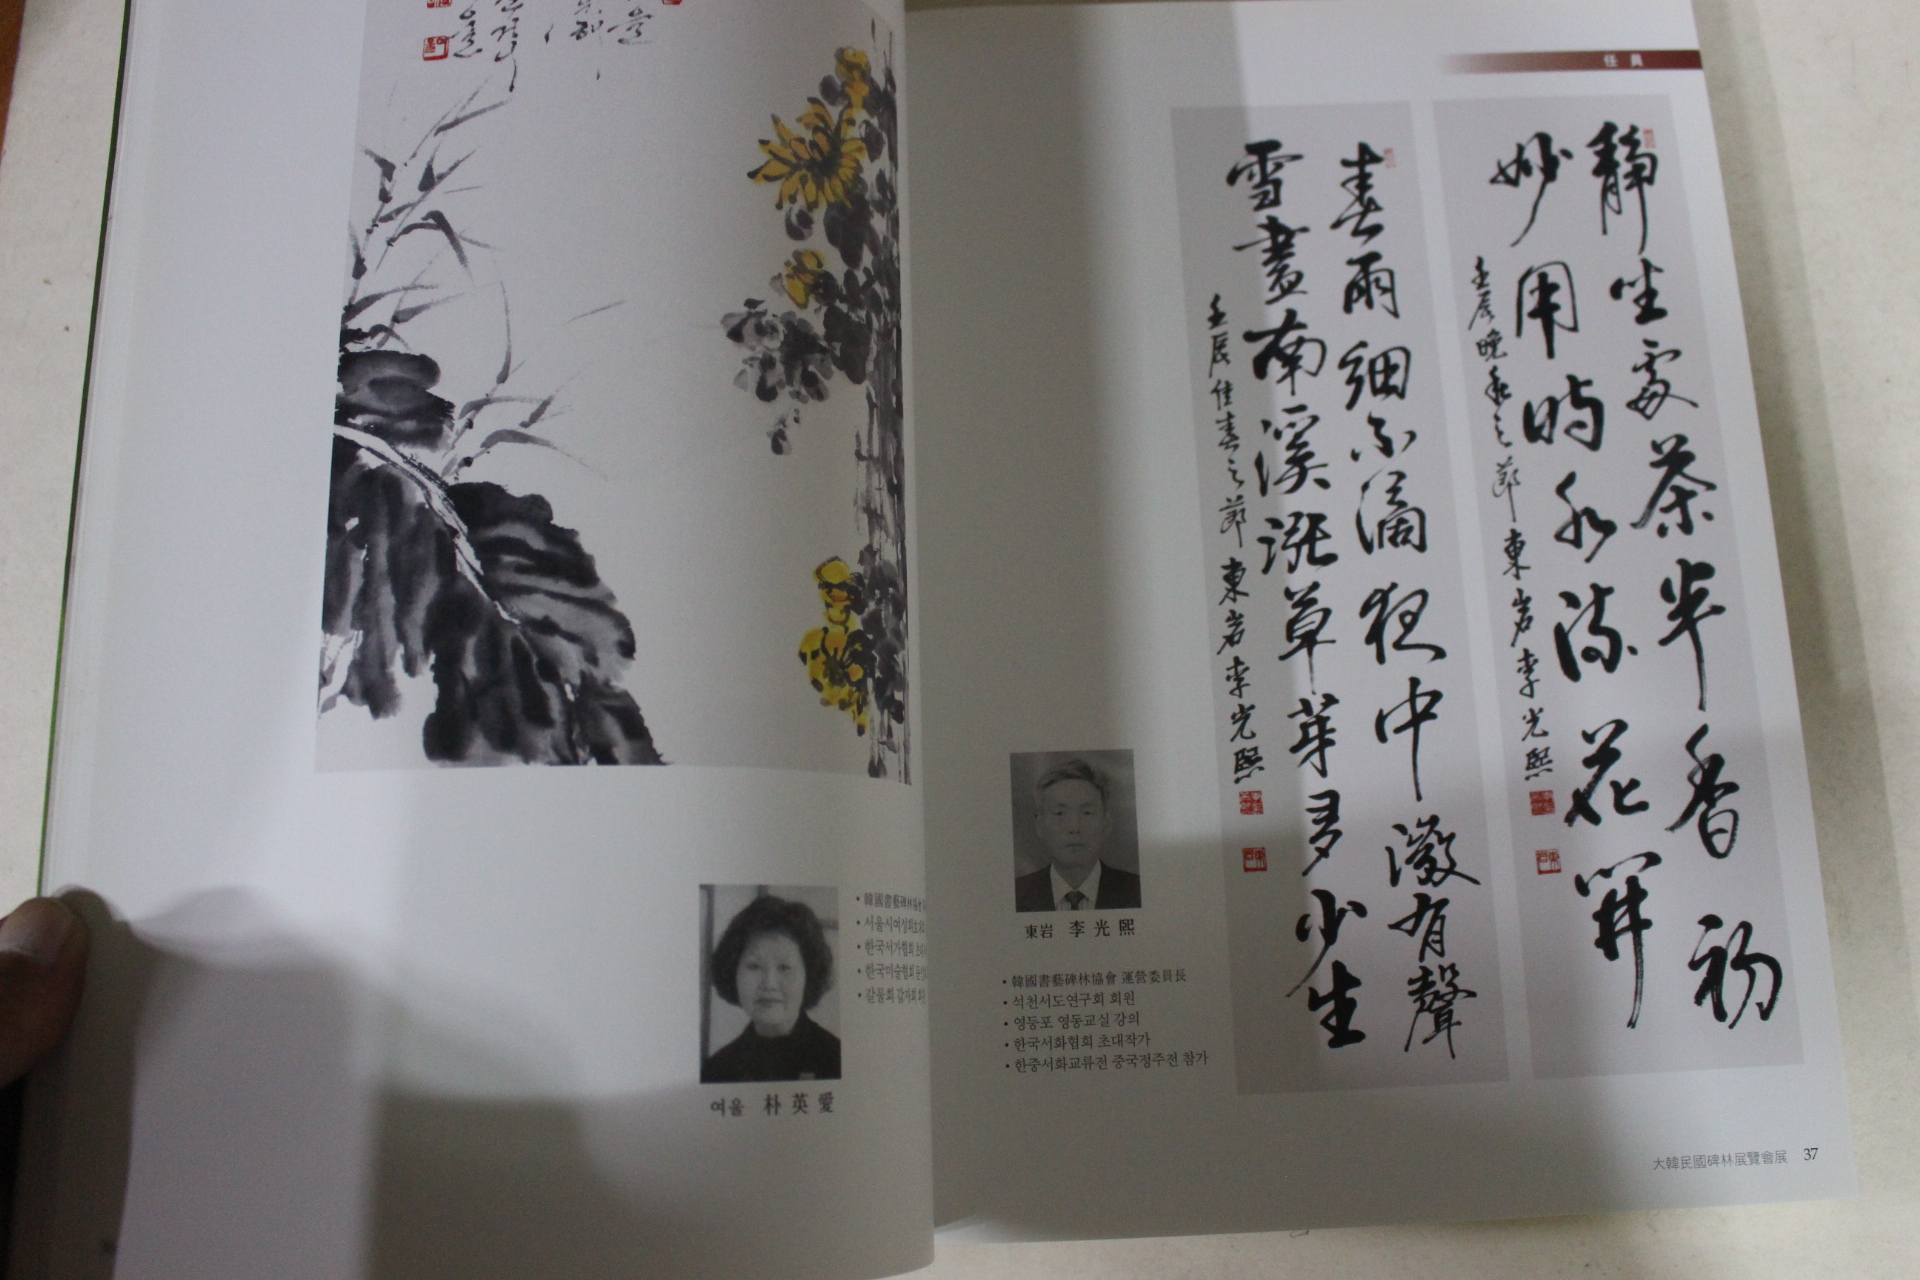 여울 朴英愛
• 韓國書藝碑林協會
• 서울시여성회
• 한국서가협회
• 한국미술협회
• 갈물회
任員
靜坐處茶半香初
妙用時水流花開
壬辰晩秋之節 東岩 李光熙
春雨細不滴 夜中微有聲
雪盡南溪漲 草芽多少生
壬辰佳春之節 東岩 李光熙
東岩 李光熙
• 韓國書藝碑林協會 運營委員長
• 석천서도연구회 회원
• 영등포 영동교실 강의
• 한국서화협회 초대작가
• 한중서화교류전 중국정주전 참가
大韓民國碑林展覽會展 37